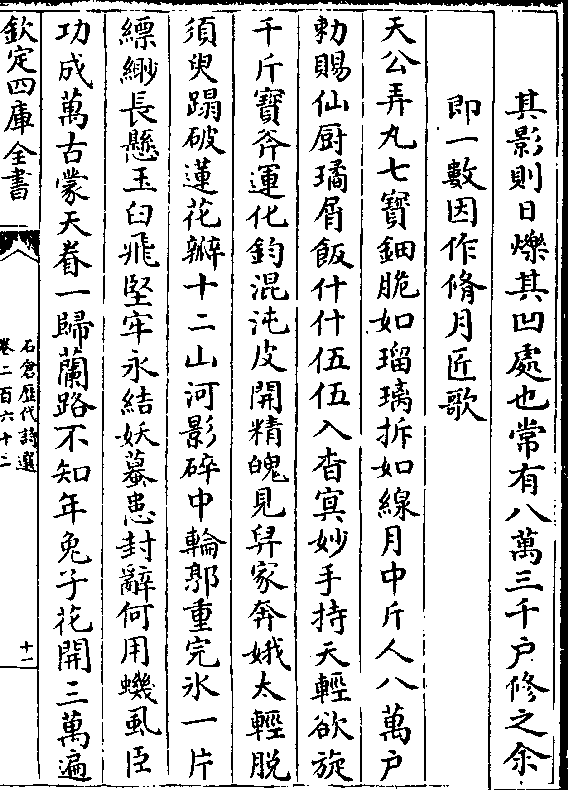 其影則日爍其凹處也常有八萬三千户修之余
即一數因作脩月匠歌
天公弄丸七寳鈿脆如瑠璃拆如線月中斤人八萬户
勅賜仙厨璚屑飯什什伍伍入杳冥妙手持天輕欲旋
千斤寳斧運化鈞混沌皮開精魄見羿家奔娥太輕脱
須臾蹋破蓮花瓣十二山河影碎中輪郭重完氷一片
縹緲長懸玉臼飛堅牢永結妖蟇患封辭何用蟣虱臣
功成萬古蒙天眷一歸蘭路不知年兔子花開三萬遍
欽定四庫全書
石倉歴代詩選
卷二百六十二
十一